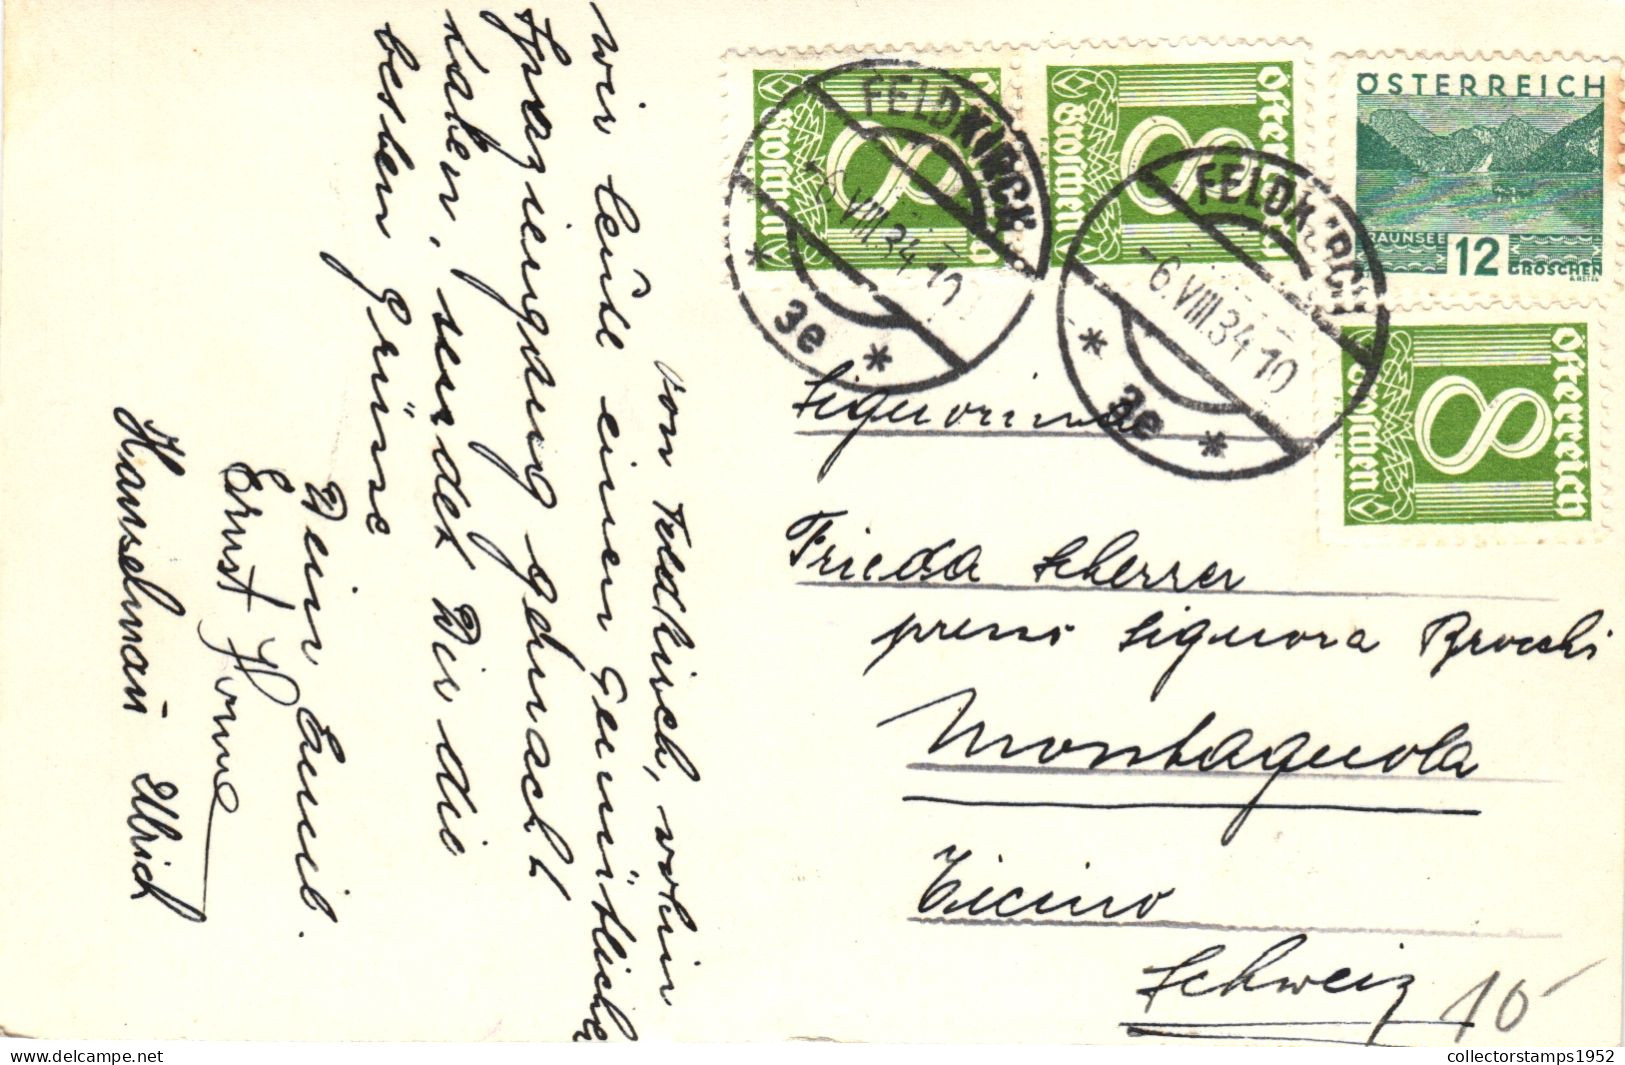 von Feldkirch, wohin
wir heute einen Gemütlichen
Spaziergang gemacht
haben, sendet Dir die
besten Grüsse
Dein Emil.
Ernst
Hanselman Ulrich
FELDKIRCH
-6.VIII.34 10
* 3e *
FELDKIRCH
-6.VIII.34 10
* 3e *
Österreich
8
Groschen
Österreich
8
Groschen
ÖSTERREICH
TRAUNSEE
12
GROSCHEN
Österreich
8
Groschen
Signorina
Frieda Scherrer
presso Signora Brocchi
Montagnola
Ticino
Schweiz
10
collectorstamps1952